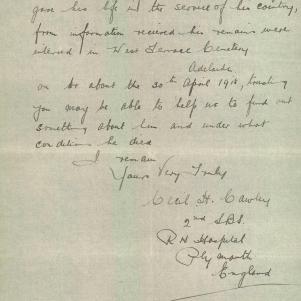 gave his life in the service of his country,
from information received his remains were
interred in West Terrace Cemetery
Adelaide
on or about the 30th April 1918, trusting
you may be able to help us to find out
something about him and under what
conditions he died
I remain
Yours Very Truly
Cecil H. Cawley
2nd S.B.S.
R N Hospital
Plymouth
England